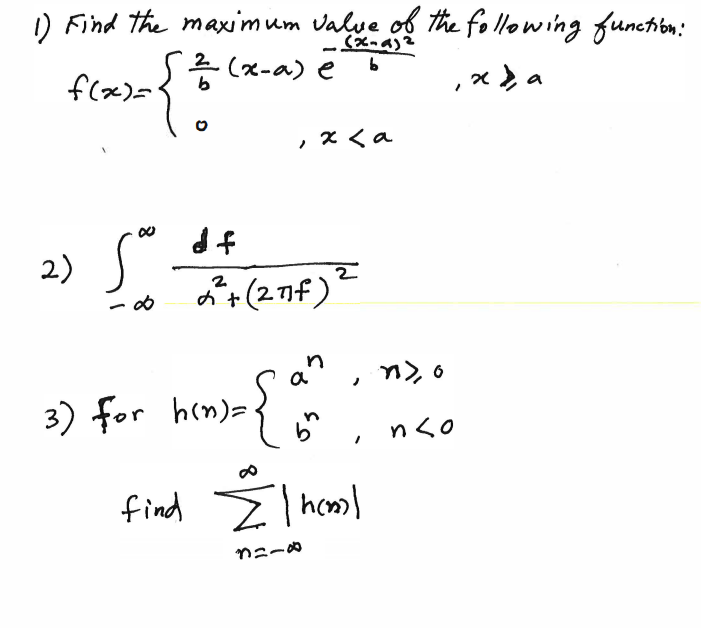 1) Find the maximum value of the following function:
f(x)= { 2/b (x-a) e^{-(x-a)²/b} , x ≥ a
0 , x < a
2) ∫_{-∞}^{∞} df / (α²+(2πf)²)
3) for h(n)= { aⁿ , n ≥ 0
bⁿ , n < 0
find Σ_{n=-∞}^{∞} |h(n)|